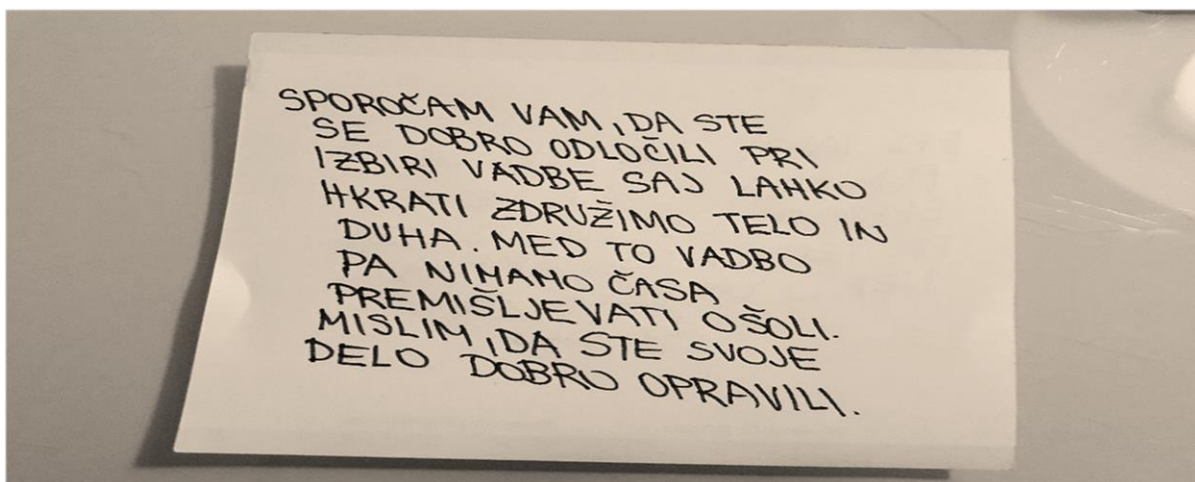 SPOROČAM VAM, DA STE
SE DOBRO ODLOČILI PRI
IZBIRI VADBE SAJ LAHKO
HKRATI ZDRUŽIMO TELO IN
DUHA. MED TO VADBO
PA NIMAMO ČASA
PREMIŠLJEVATI O ŠOLI.
MISLIM, DA STE SVOJE
DELO DOBRO OPRAVILI.